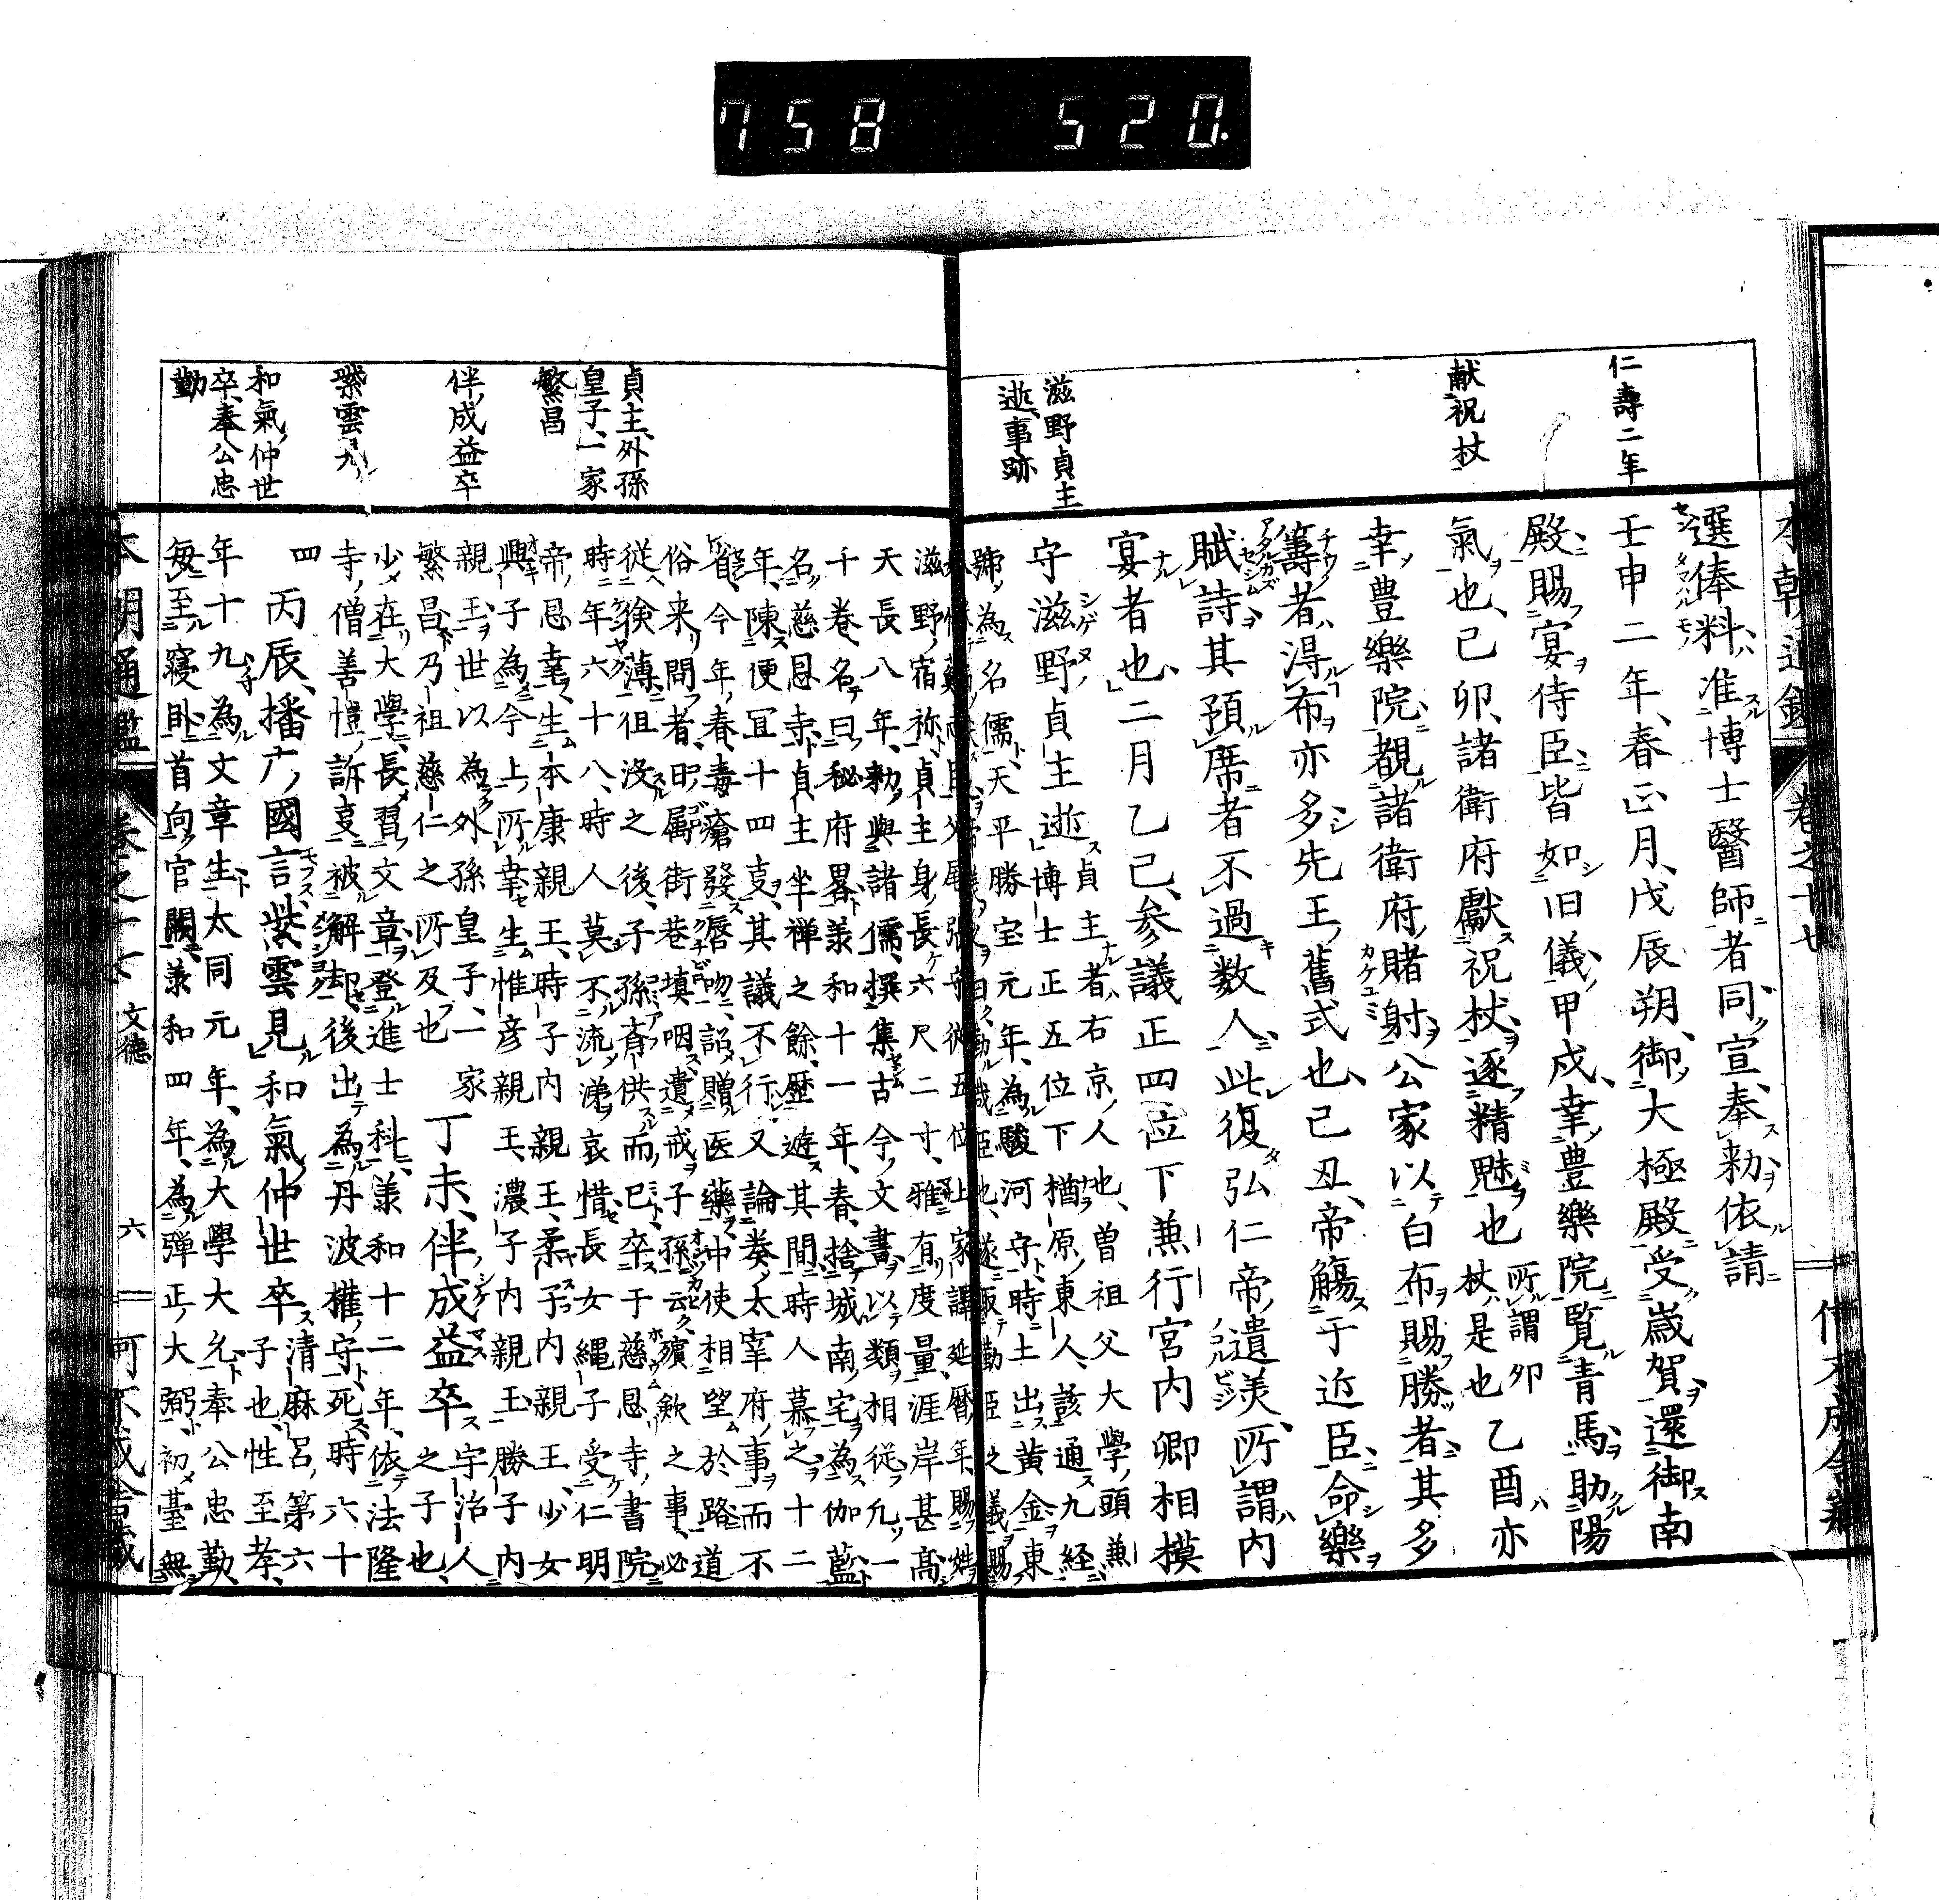 758 520.
仁壽二年
献祝杖
滋野貞主
逝事跡
選俸料准博士醫師者同宣奉勅依請
壬申二年春正月戊辰朔御大極殿受歳賀還御南
殿賜宴侍臣皆如旧儀甲戌幸豊樂院覧青馬助陽
氣也己卯諸衛府獻祝杖逐精魅也所謂卯杖是也乙酉亦
幸豊樂院覩諸衛府賭射公家以白布賜勝者其多
籌者得布亦多先王舊式也己丑帝觴于近臣命樂
賦詩其預席者不過数人此復弘仁帝遺美所謂内
宴者也二月乙巳参議正四位下兼行宮内卿相摸
守滋野貞主逝
貞主者右京人也曽祖父大學頭兼
博士正五位下楢原東人該通九経
號為名儒天平勝宝元年為駿河守時土出黄金東
滋野宿祢貞主身長六尺二寸雅有度量涯岸甚高
天長八年勅與諸儒撰集古今文書以類相從凡一
千卷名曰秘府畧羕和十一年春捨城南宅為伽藍
名慈恩寺貞主坐禅之餘歴遊其間時人慕之十二
年陳便冝十四叓其議不行又論奏太宰府事而不
省今年春毒瘡發唇吻詔贈医藥中使相望於路道
俗来問者曰屬街巷填咽遺戒子孫云殯歛之事必
從倹薄徂没之後子孫斎供而已卒于慈恩寺書院
時年六十八時人莫不流涕哀惜長女縄子受仁明
帝恩幸生本康親王時子内親王柔子内親王少女
興子為今上所幸生惟彦親王濃子内親王勝子内
親王世以為外孫皇子一家
繁昌乃祖慈仁之所及也
丁未伴成益卒
宇治人
之子也
少在大學長習文章登進士科羕和十二年依法隆
寺僧善愷訴叓被解却後出為丹波權守死時六十
四
丙辰播广國言紫雲見和氣仲世卒
清麻呂第六
子也性至孝
年十九為文章生太同元年為大學大允奉公忠勤
毎至寝卧首向官闕羕和四年為弾正大弼初臺無
貞主外孫
皇子一家
繁昌
伴成益卒
紫雲見
和氣仲世
卒奉公忠
勤
本朝通鑑 卷之十七 文德 六